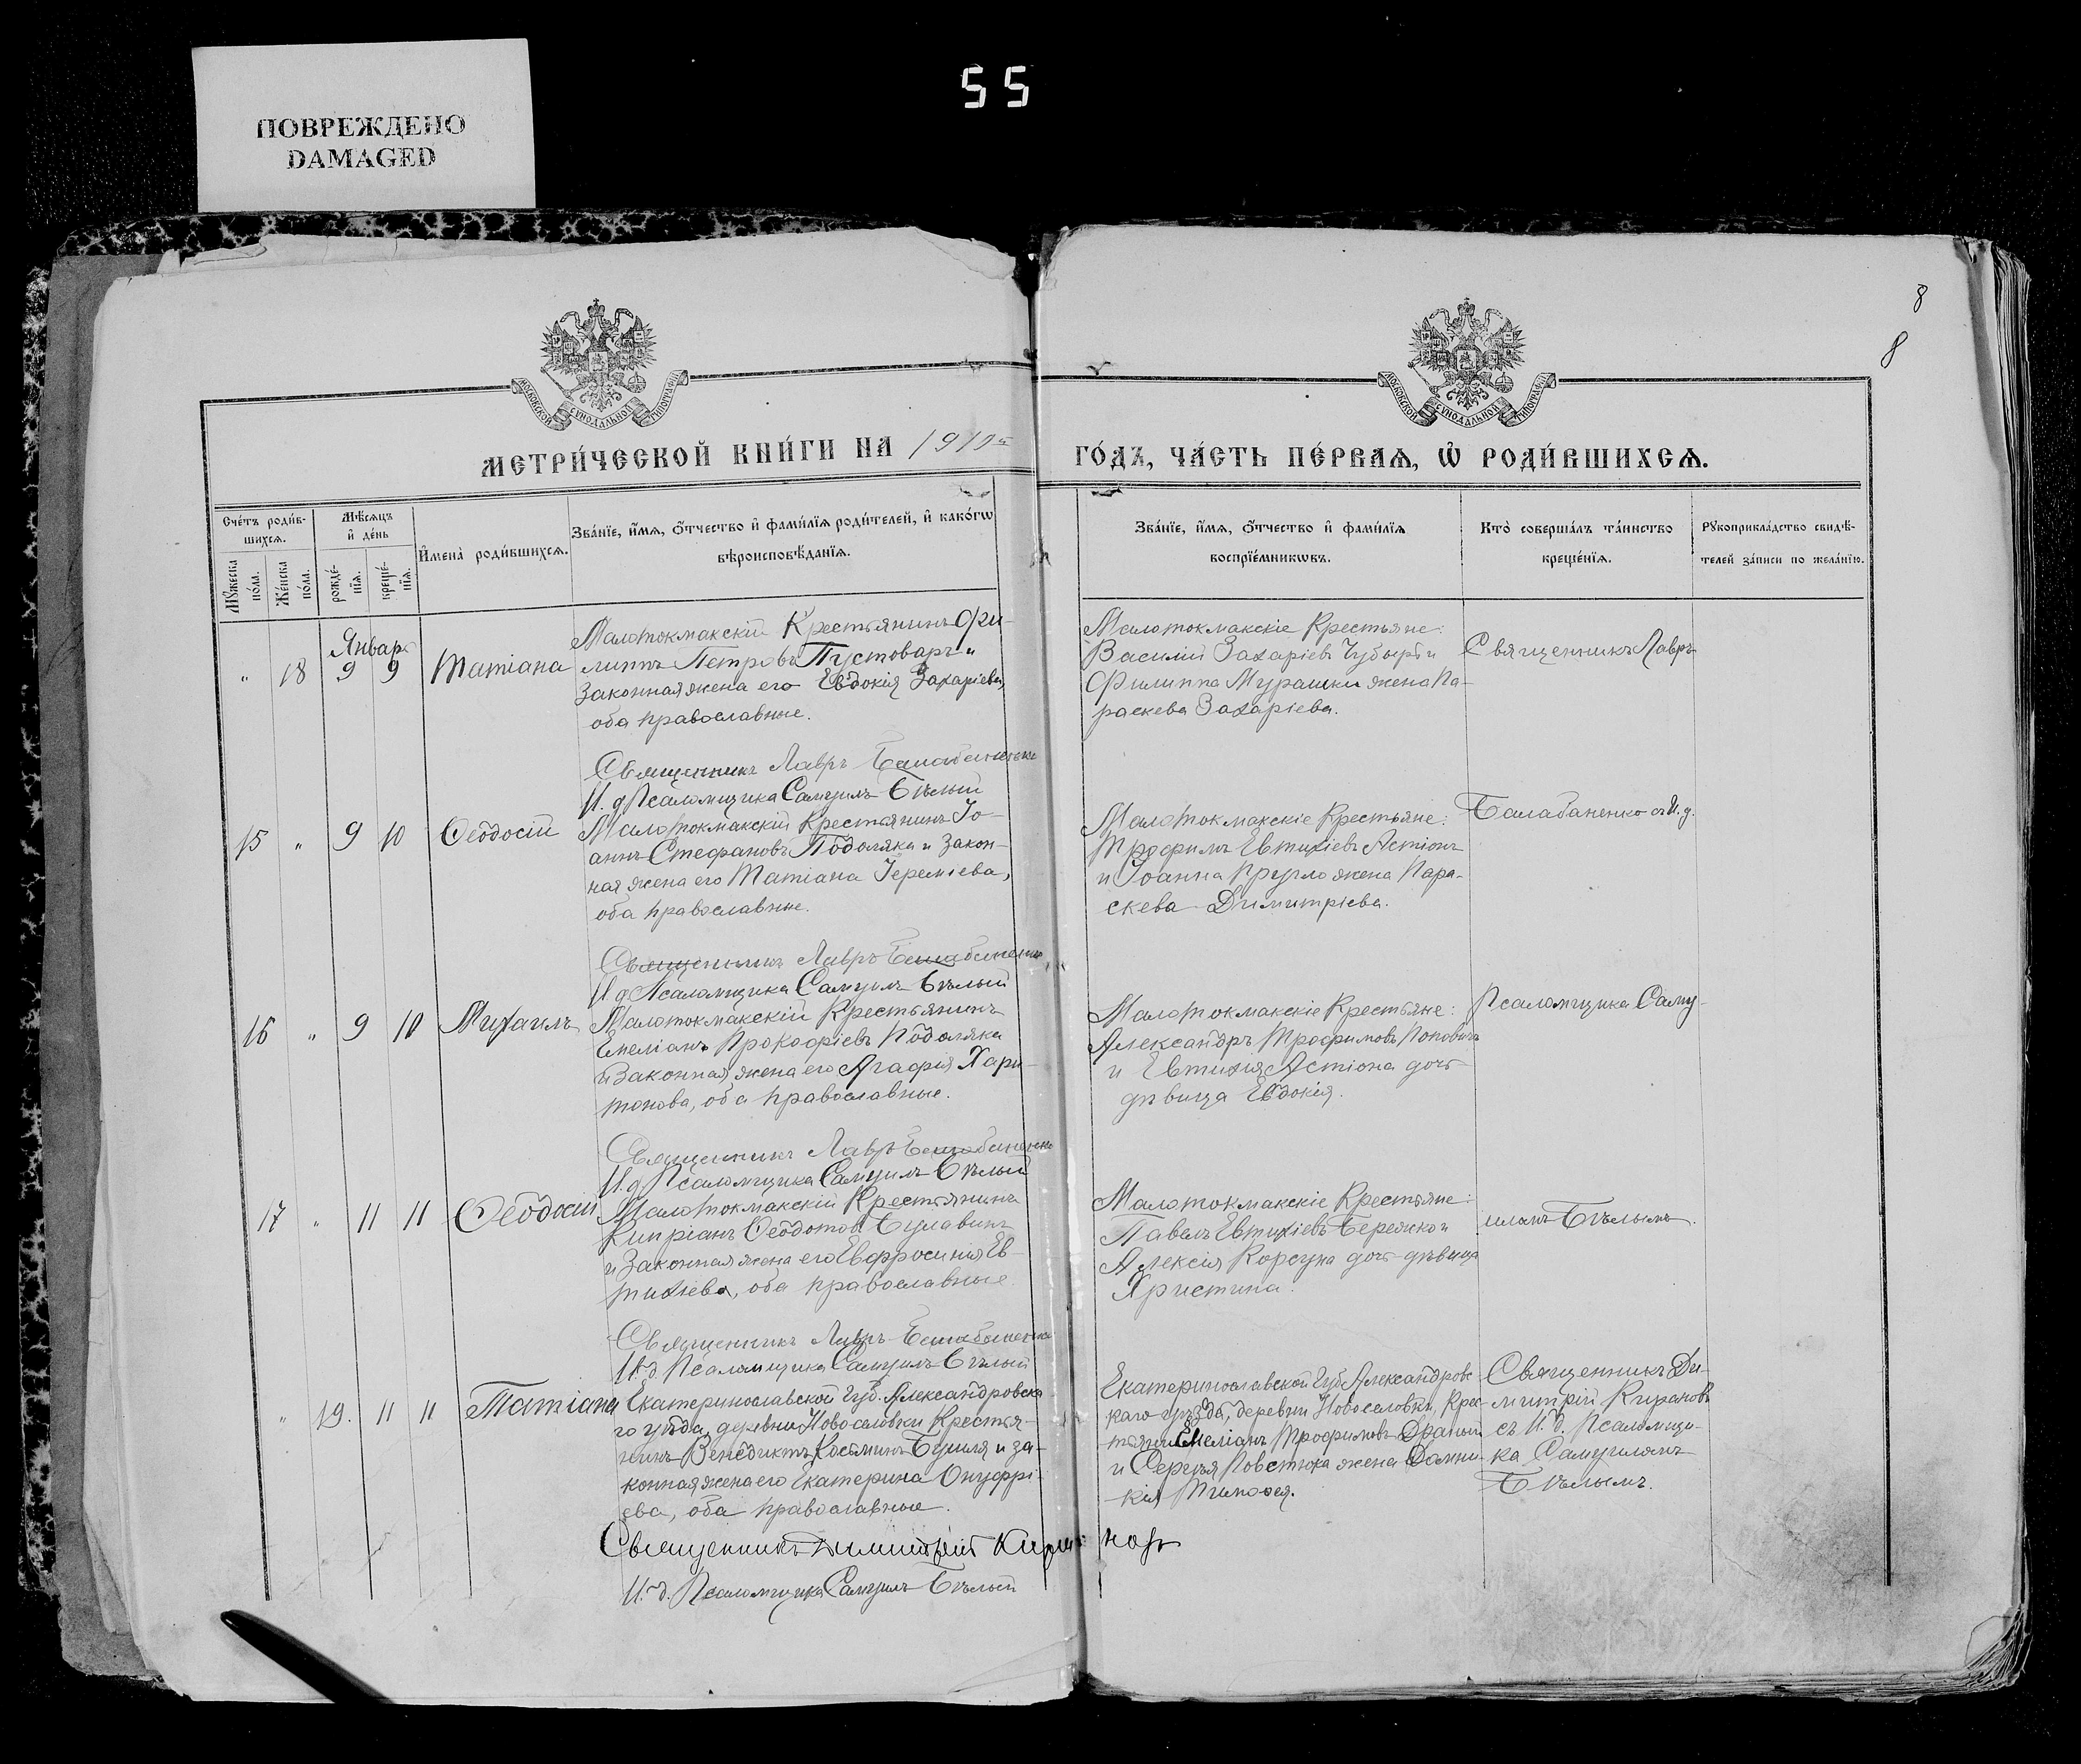 55
ПОВРЕЖДЕНО
DAMAGED
8
8
МОСКОВСКОЙ СѴНОДАЛЬНОЙ ТИПОГРАФІИ
МОСКОВСКОЙ СѴНОДАЛЬНОЙ ТИПОГРАФІИ
МЕТРИ́ЧЕСКОЙ КНИ́ГИ НА
ГО́ДЪ, ЧА́СТЬ ПЕ́РВАѦ, Ѡ҆ РОДИ́ВШИХСѦ.
Сче́тъ роди́в-
шихсѧ.
Мꙋ́жеска
по́ла.
Же́нска
по́ла.
Мѣ́сѧцъ
и҆ де́нь
рожде́-
нїѧ.
креще́-
нїѧ.
И҆мена̀ роди́вшихсѧ.
Зва́нїе, и҆́мѧ, ѻ҆́тчество и҆ фами́лїѧ роди́телей, и҆ како́гѡ
вѣроисповѣ́данїѧ.
Зва́нїе, и҆́мѧ, ѻ҆́тчество и҆ фами́лїѧ
воспрїе́мникѡвъ.
Кто̀ соверша́лъ та́инство
креще́нїѧ.
Рꙋкоприкла́дство свидѣ́-
телей за́писи по жела́нїю.
Январь
" 18 9 9 Татіана
Малотокмакскій Крестьянинъ Фи-
липпъ Петровъ Пустоваръ и
Законная жена его Евдокія Захаріева,
оба православные.
Малотокмакскіе Крестьяне:
Василій Захаріевъ Чубырь и
Филиппа Мурашки жена Па-
раскева Захаріева.
Священникъ Лавръ
Священникъ Лавръ Балабаненко
И. д. Псаломщика Самуилъ Бѣлый
15 " 9 10 Ѳеодосій
Малотокмакскій Крестьянинъ Іо-
аннъ Стефановъ Подоляка и Закон-
ная жена его Татіана Іереміева,
оба православные.
Малотокмакскіе Крестьяне:
Трофимъ Евтихіевъ Астіонъ
и Іоанна Кругло жена Пара-
скева Димитріева.
Балабаненко съ И. д.
Священникъ Лавръ Балабаненко
И. д. Псаломщика Самуилъ Бѣлый
16 " 9 10 Михаилъ
Малотокмакскій Крестьянинъ
Емеліанъ Прокофіевъ Подоляка
и Законная жена его Агафія Хари-
тонова, оба православные.
Малотокмакскіе Крестьяне:
Александръ Трофимовъ Поповичъ
и Евтихія Астіона дочь
дѣвица Евдокія.
Псаломщика Саму-
Священникъ Лавръ Балабаненко
И. д. Псаломщика Самуилъ Бѣлый
17 " 11 11 Ѳеодосій
Малотокмакскій Крестьянинъ
Кипріанъ Ѳеодотовъ Булавинъ
и Законная жена его Евфросинія Ев-
тихіева, оба православные
Малотокмакскіе Крестьяне:
Павелъ Евтихіевъ Бережко и
Алексія Корсуна дочь дѣвица
Христина.
иломъ Бѣлымъ.
Священникъ Лавръ Балабаненко
И. д. Псаломщика Самуилъ Бѣлый
" 19. 11 11 Татіана
Екатеринославской Губ. Александровска-
го уѣзда, деревни Новоселовки Крестья-
нинъ Венедиктъ Косьминъ Буциля и за-
конная жена его Екатерина Онуфрі-
ева, оба православные.
Екатеринославской Губ. Александровс-
каго уѣзда, деревни Новоселовки, Крес-
тьяни Емеліанъ Трофимовъ Драный
и Сергѣя Повстюка жена Домни-
кія Тимофея.
Священникъ Ди-
митрій Кирановъ
съ И. д. Псаломщи-
ка Самуиломъ
Бѣлымъ.
Священникъ Димитрій Кирановъ
И. д. Псаломщика Самуилъ Бѣлый